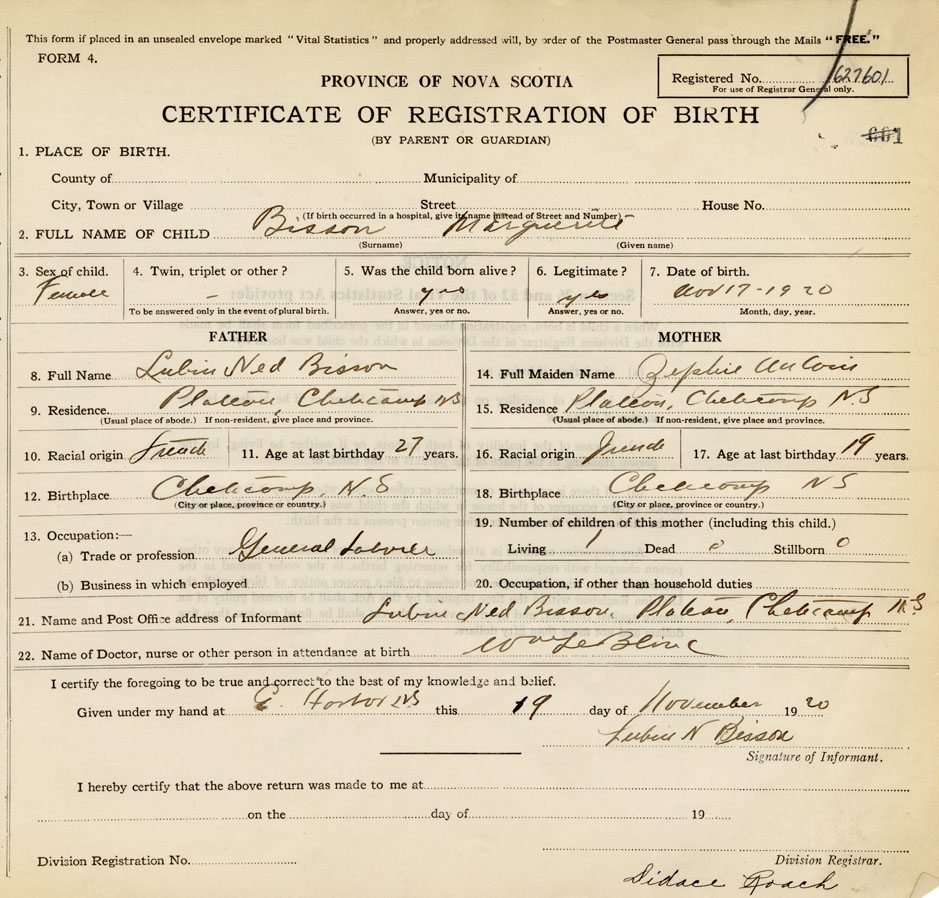 This form if placed in an unsealed envelope marked "Vital Statistics" and properly addressed will, by order of the Postmaster General pass through the Mails "FREE."
FORM 4.
PROVINCE OF NOVA SCOTIA
Registered No. 627601
For use of Registrar General only.
CERTIFICATE OF REGISTRATION OF BIRTH
(BY PARENT OR GUARDIAN)
601
1. PLACE OF BIRTH.
County of Municipality of
City, Town or Village Street House No.
(If birth occurred in a hospital, give its name instead of Street and Number)
2. FULL NAME OF CHILD Bisson Marguerite
(Surname) (Given name)
3. Sex of child. 4. Twin, triplet or other? 5. Was the child born alive? 6. Legitimate? 7. Date of birth.
Female - yes yes Nov 17-1920
To be answered only in the event of plural birth. Answer, yes or no. Answer, yes or no. Month, day, year.
FATHER MOTHER
8. Full Name Lubin Ned Bisson 14. Full Maiden Name Zephie
9. Residence. Plateau, Chetecamp NS 15. Residence Plateau, Chetecamp N.S
(Usual place of abode.) If non-resident, give place and province. (Usual place of abode.) If non-resident, give place and province.
10. Racial origin French 11. Age at last birthday 27 years. 16. Racial origin French 17. Age at last birthday 19 years.
12. Birthplace Chetcamp, N.S 18. Birthplace Chetecamp NS
(City or place, province or country.) (City or place, province or country.)
13. Occupation:— 19. Number of children of this mother (including this child.)
(a) Trade or profession General Laborer Living 1 Dead 0 Stillborn 0
(b) Business in which employed 20. Occupation, if other than household duties
21. Name and Post Office address of Informant Lubin Ned Bisson Plateau, Chetecamp N.S
22. Name of Doctor, nurse or other person in attendance at birth Wm LeBlanc
I certify the foregoing to be true and correct to the best of my knowledge and belief.
Given under my hand at E. Harbor NS this 19 day of November 1920
Lubin N Bisson
Signature of Informant.
I hereby certify that the above return was made to me at
on the day of 19
Division Registration No.
Division Registrar.
Didace Roach